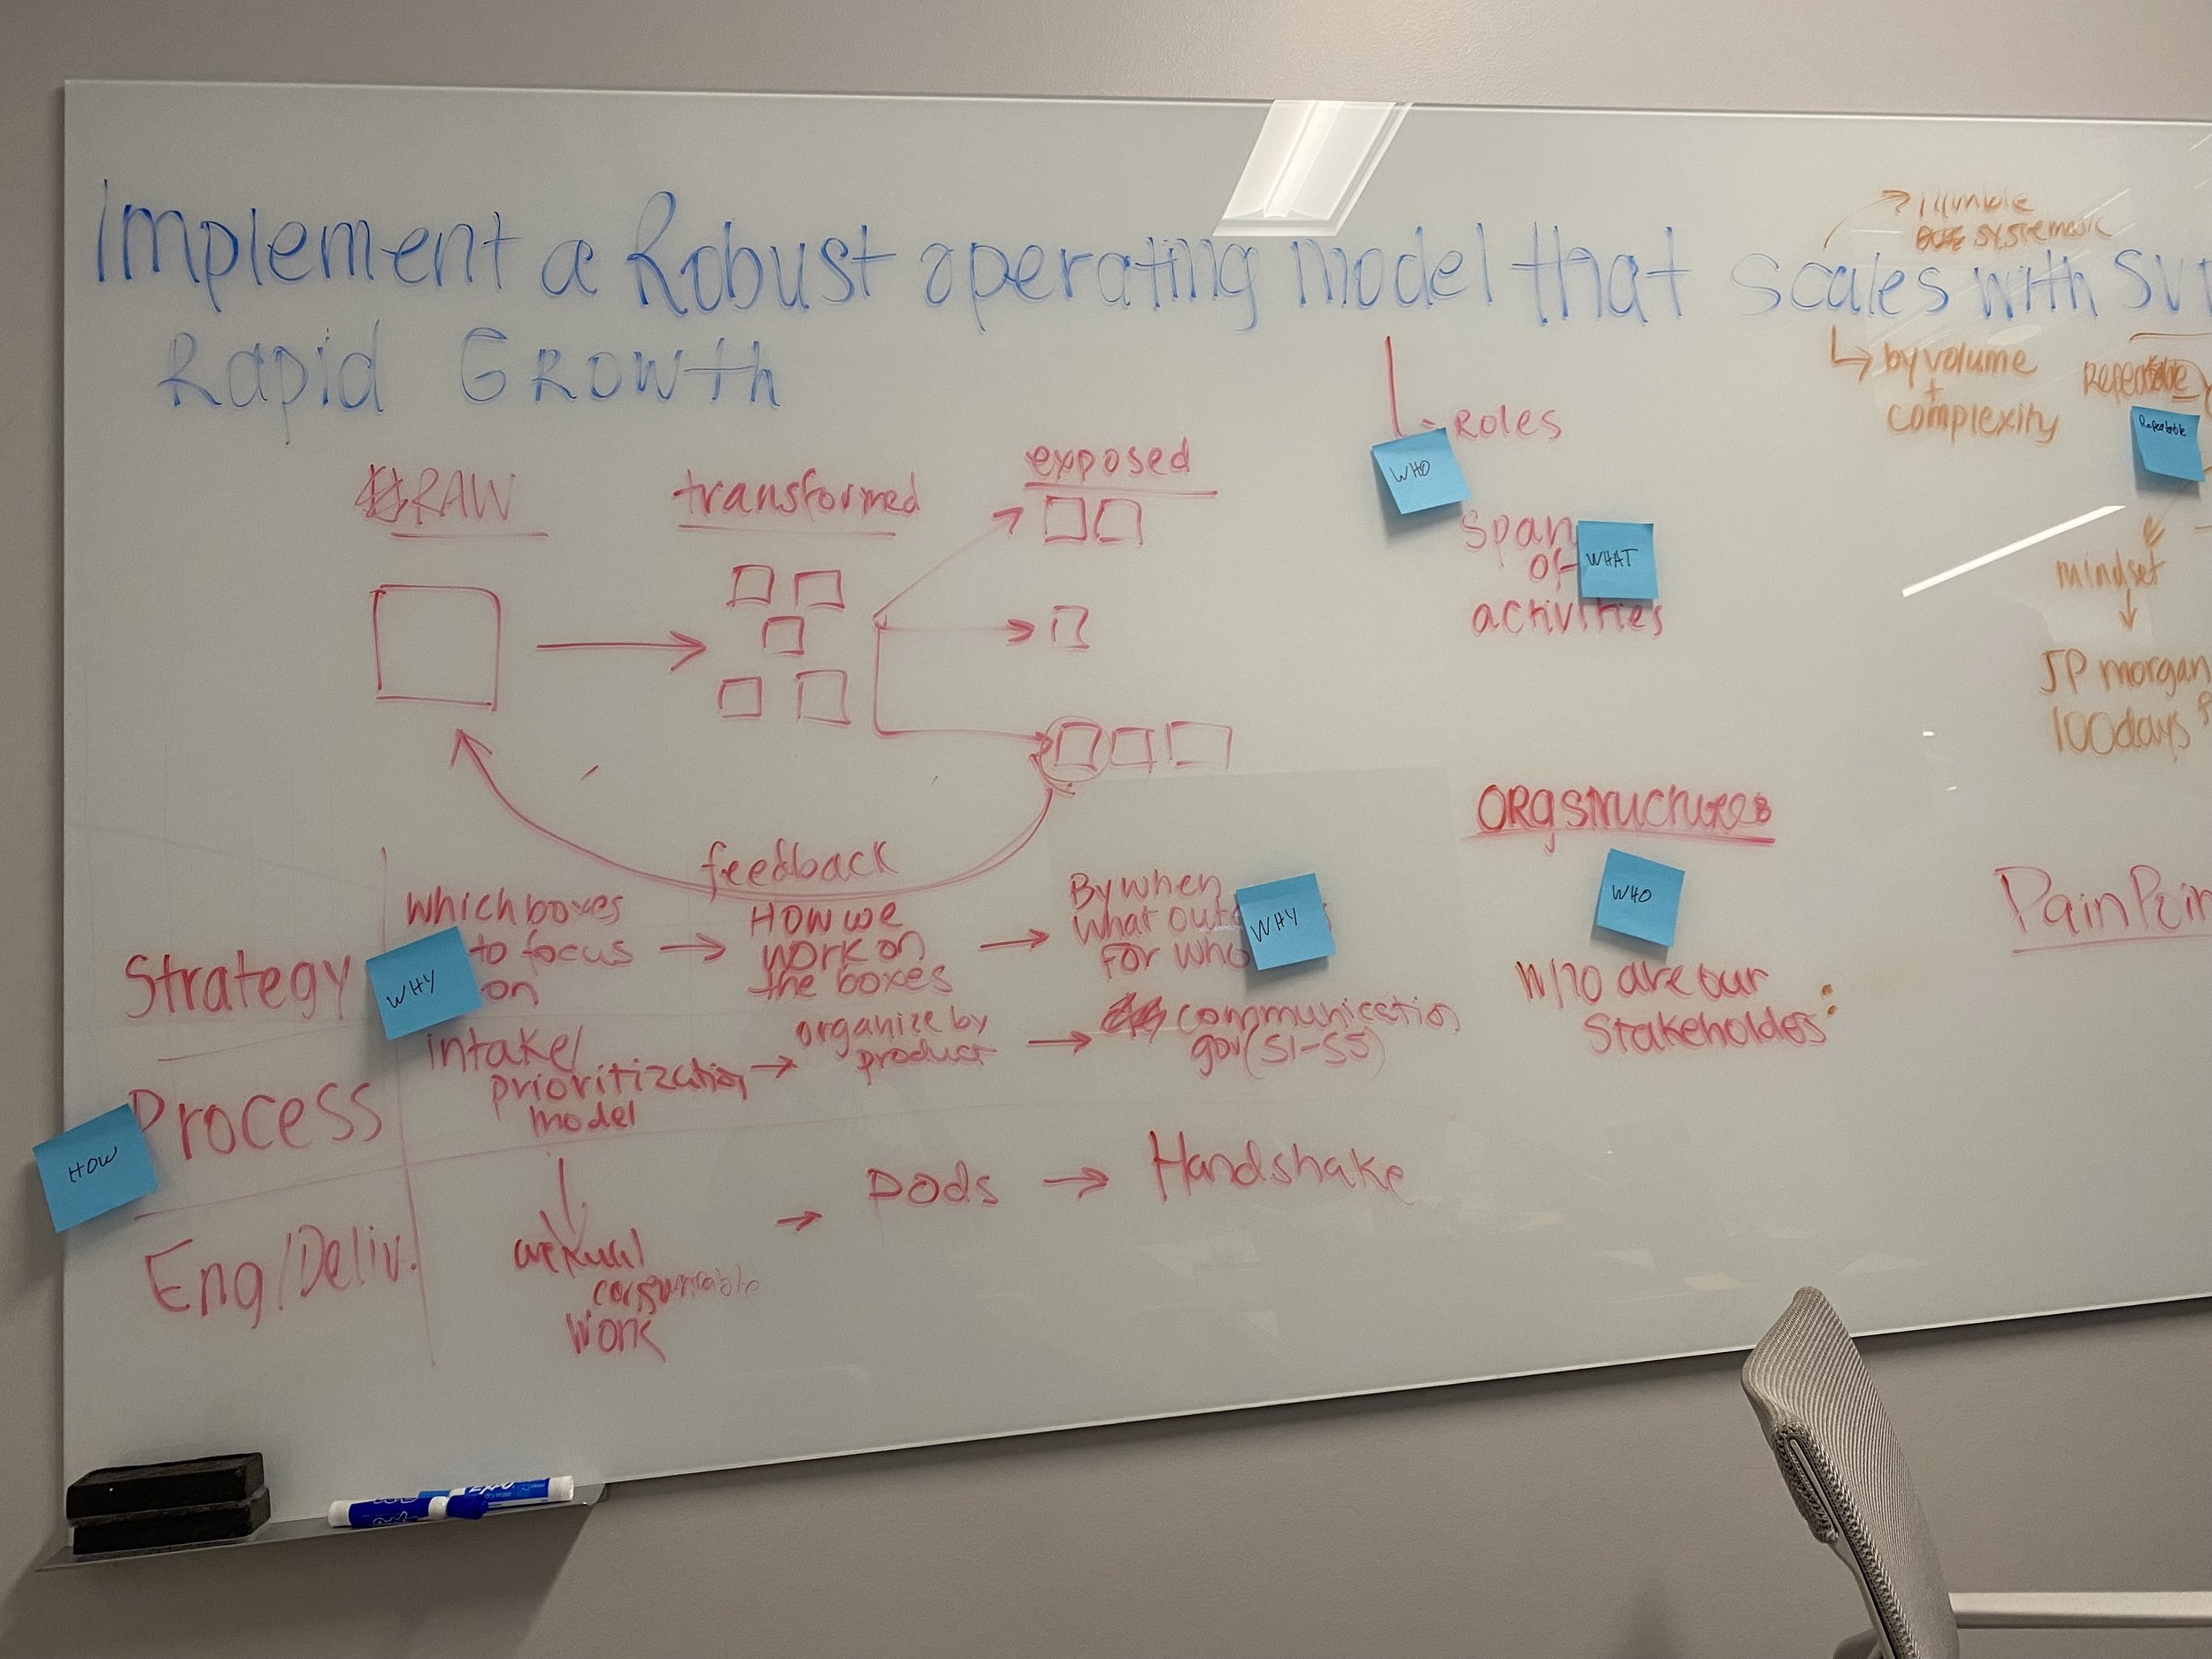 Implement a Robust operating model that scales with
Rapid GROWTH
systematic
by volume
+
complexity
Repeatable
Repeatable
mindset
JP morgan
100days
- ROLES
WHO
span
of
WHAT
activities
RAW
transformed
exposed
feedback
ORgstructures
WHO
are our
Stakeholders
Strategy
WHY
which boxes
to focus
on
HOW we
work on
the boxes
By when
what out
for who
WHY
HOW
Process
intake/
prioritization
model
organize by
product
communication
gov(S1-S5)
Eng/Deliv.
work
PODS
Handshake
EXPO